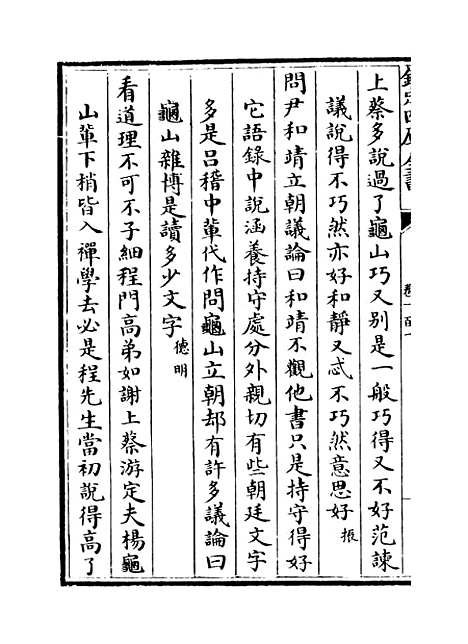 欽定四庫全書
卷一百一
上蔡多說過了龜山巧又别是一般巧得又不好范諫
議說得不巧然亦好和靜又忒不巧然意思好振
問尹和靖立朝議論曰和靖不觀他書只是持守得好
它語錄中說涵養持守處分外親切有些朝廷文字
多是吕稽中輩代作問龜山立朝却有許多議論曰
龜山雜博是讀多少文字德明
看道理不可不子細程門高弟如謝上蔡游定夫楊龜
山輩下梢皆入禪學去必是程先生當初說得高了